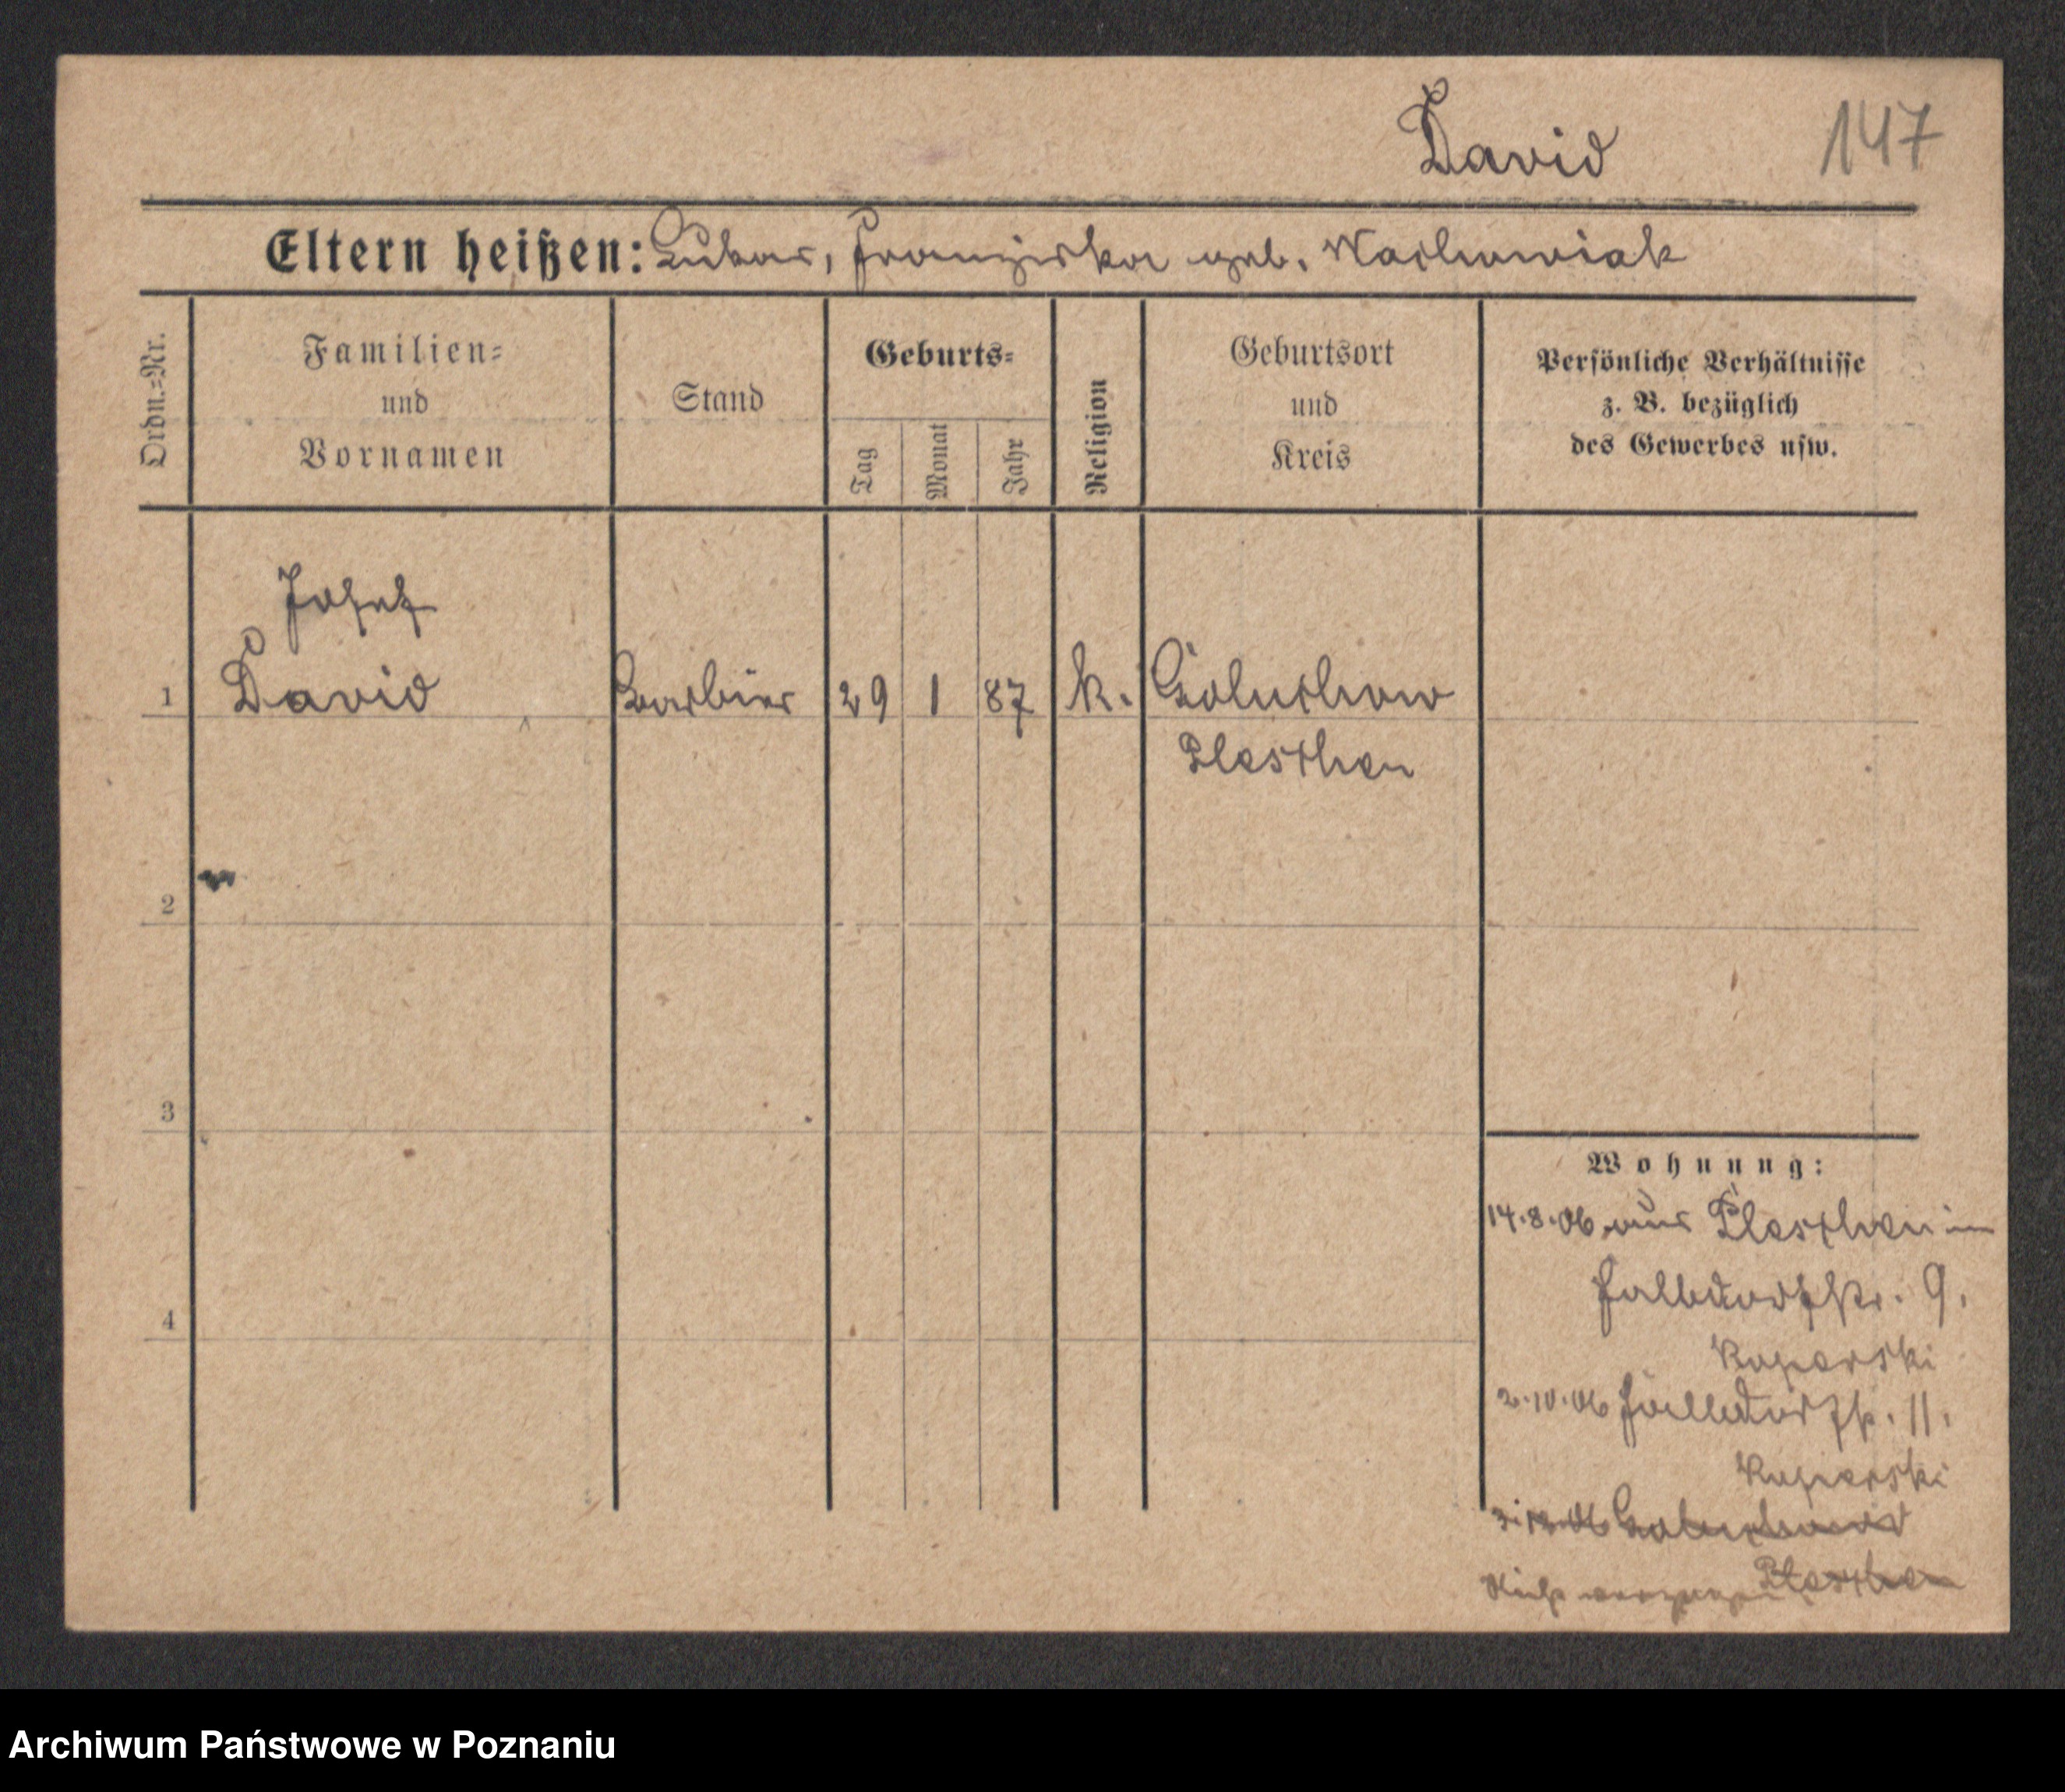 David 147
Eltern heißen: Lukas, Franziska geb. Wachowiak
Ordn.-Nr.
Familien-
und
Vornamen
Stand
Geburts-
Tag
Monat
Jahr
Religion
Geburtsort
und
Kreis
Persönliche Verhältnisse
z. B. bezüglich
des Gewerbes usw.
Josef
1 David Barbier 29 1 87 k. Goluchow
Pleschen
2
3
4
Wohnung:
14.8.06 aus Pleschen in
Halldorfstr. 9.
Kuperski
2.10.06 Halldorfstr. 11.
Kuperski
Goluchow
Nicht verzogen Pleschen
Archiwum Państwowe w Poznaniu